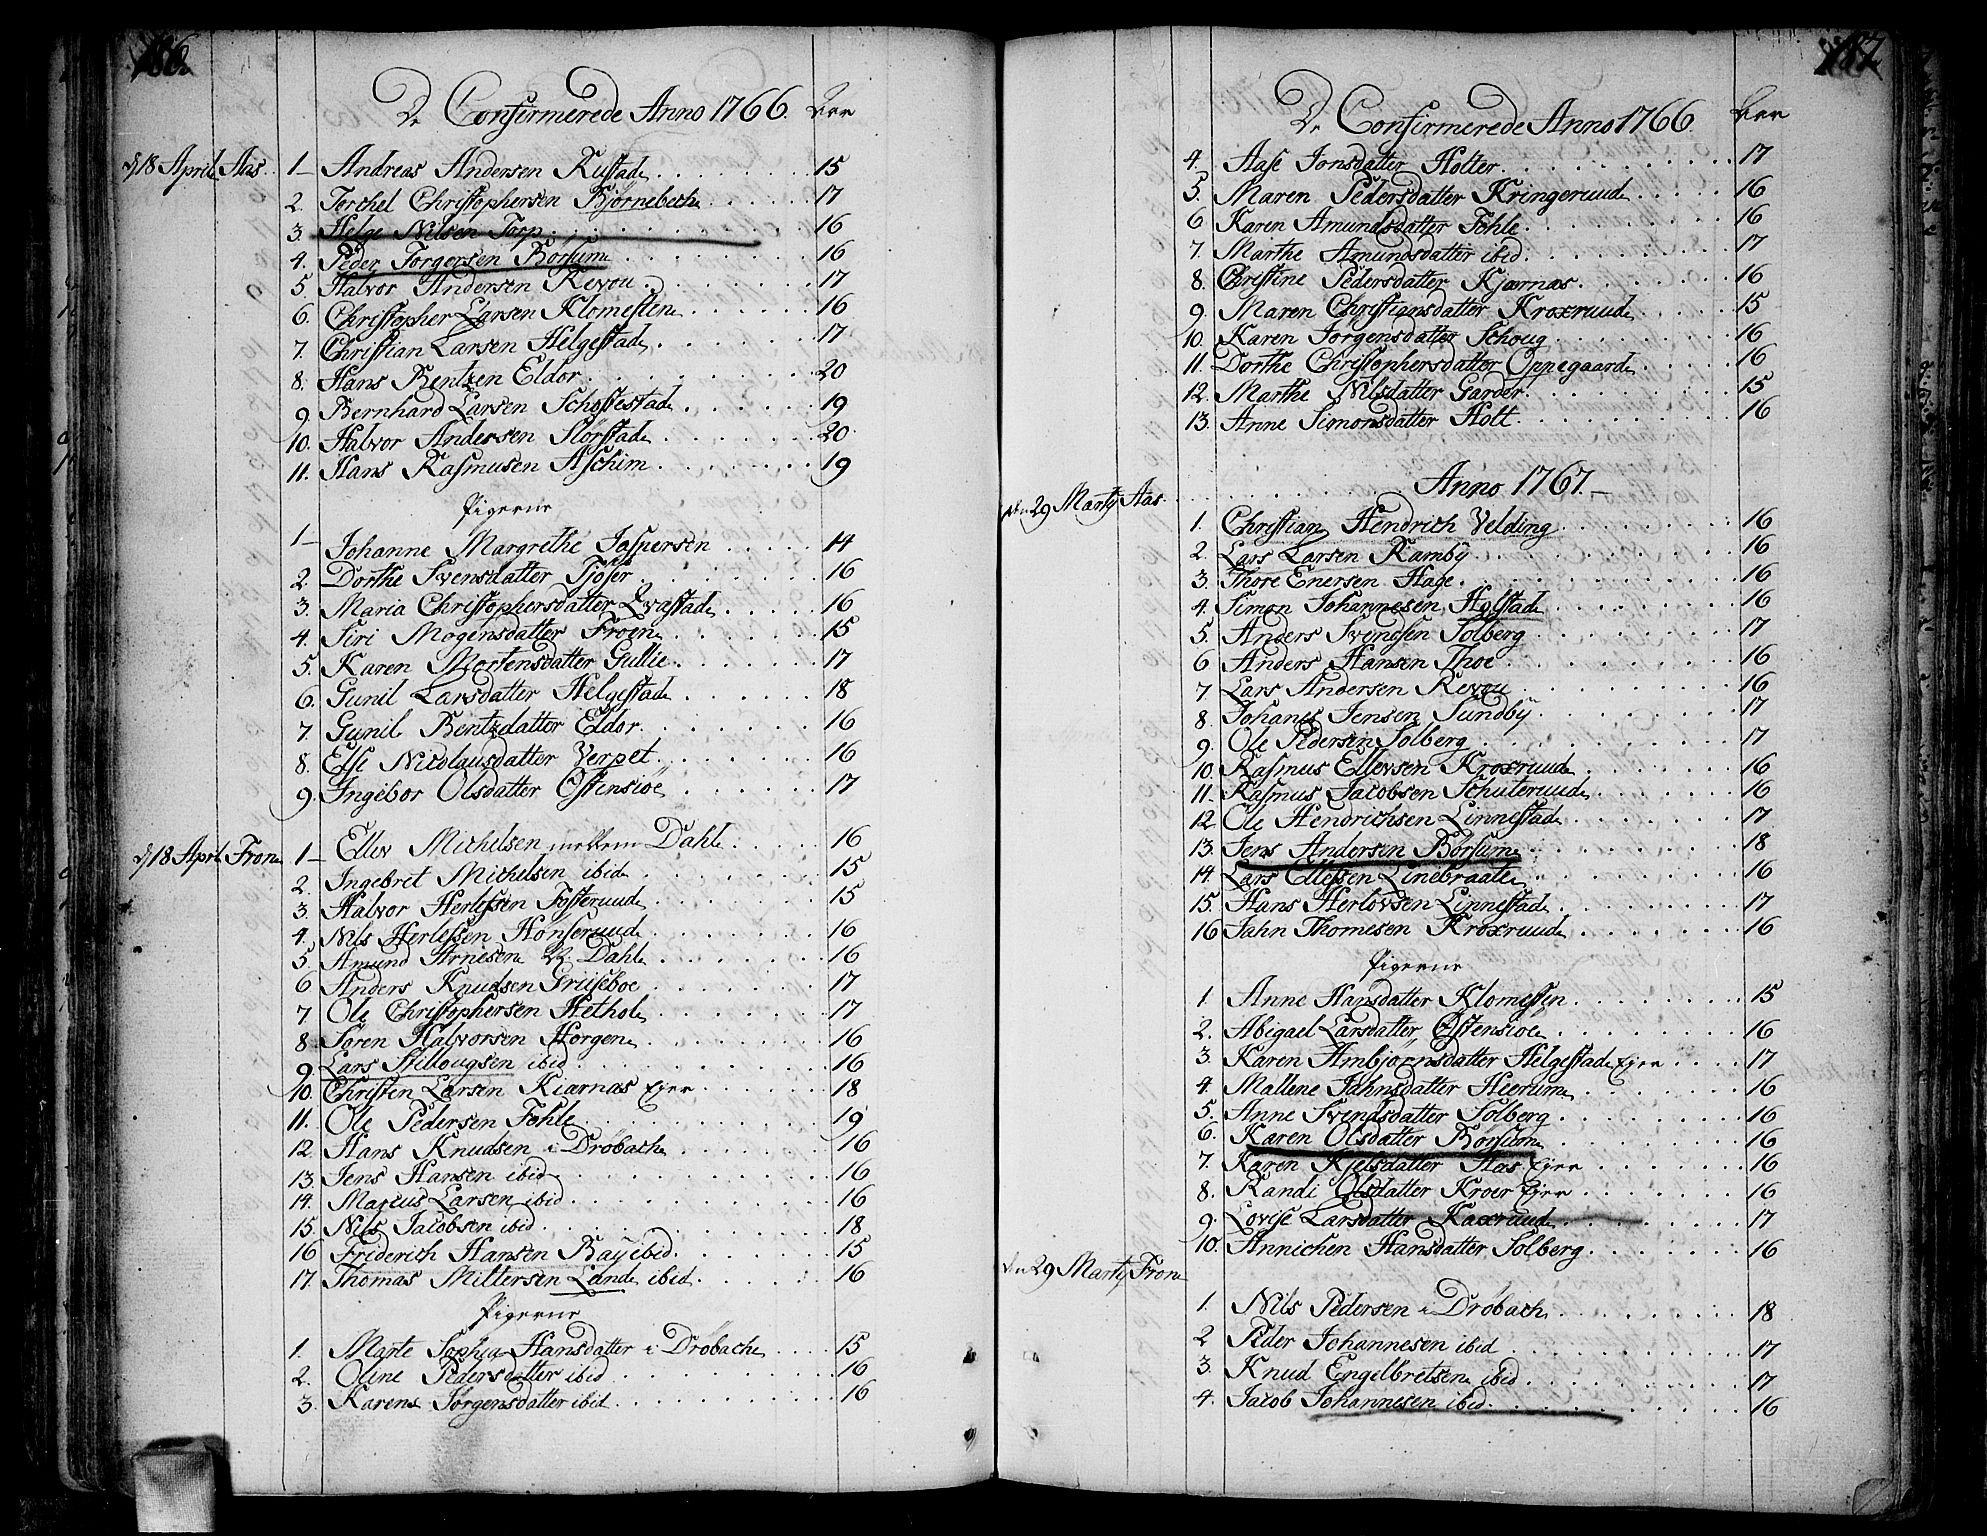 De Confirmerede Anno 1766.
d 18 April Aas.
1 Andreas Andersen Rustad 15
2. Torchel Christophersen Bjørnebech 17
3. Helge Nilsen Torp 16
4. Peder Torgersen Børsum 16
5. Halvor Andersen Revou 17
6. Christopher Larsen Klomesten 16
7. Christian Larsen Helgestad 17
8. Hans Bentzen Eldor 20
9. Bernhard Larsen Schossestad 19
10. Halvor Andersen Storstad 20
11. Hans Rasmusen Aschim 19
Pigerne
1 Johanne Margrethe Jaspersen 14
2 Dorthe Svensdatter Tjoser 16
3. Maria Christophersdatter Qvastad 16
4. Siri Mogensdatter Froen 15
5. Karen Mortensdatter Gullie 17
6. Gunil Larsdatter Helgestad 18
7 Gunil Bentzdatter Eldor 16
8. Else Nicolausdatter Verpet 16
9. Ingebor Olsdatter Østensiøe 17
d 18 April Fron
1 Ellev Michelsen mellem Dahle 16
2. Ingebret Michelsen ibid 15
3. Halvor Herlefsen Fosterud 15
4. Nils Herlefsen Hønserud 16
5 Amund Arnesen Dahle 16
6 Anders Knudsen Griiseboe 17
7 Ole Christophersen Hethol 17
8 Søren Halvorsen Horgen 16
9. Lars Hillougsen ibid 16
10. Christen Larsen Kiærnæs Ejer 18
11. Ole Pedersen Fohle 19
12. Hans Knudsen i Drøbach 16
13. Jens Hansen ibid 16
14. Marcus Larsen ibid 16
15. Nils Jacobsen ibid 18
16 Friderich Hansen Bay ibid. 15
17. Thomas Mittersen Lande ibid. 16
Pigerne
1. Marte Sophia Hansdatter i Drøbach 15
2. Oline Pedersdatter ibid 16
3. Karen Jørgensdatter ibid 16
De Confirmerede Anno 1766
4. Aase Jonsdatter Holter 17
5. Maren Pedersdatter Kringerud 16
6 Karen Amundsdatter Fohle 16
7. Marthe Amundsdatter ibid 17
8. Christine Pedersdatter Kjærnæs 16
9. Maren Christiansdatter Kroxrud 15
10. Karen Jørgensdatter Schoug 16
11. Dorthe Christophersdatter Oppegaard 16
12. Marthe Nilsdatter Garder 15
13. Anne Simonsdatter Holt 16
Anno 1767.
den 29 Martij Aas.
1. Christian Hendrich Velding 16
2. Lars Larsen Ramby 16
3. Thore Enersen Hage 16
4. Simon Johannesen Holstad 16
5. Anders Svendsen Solberg 17
6 Anders Hansen Thoe 16
7 Lars Andersen Revou 16
8. Johanes Jensen Sundby 17
9. Ole Pedersen Solberg 17
10. Rasmus Ellevsen Kroxrud 16
11 Rasmus Jacobsen Schuterud 16
12 Ole Hendrichsen Linnestad 17
13. Jens Andersen Børsum 18
14. Lars Ellefsen Linebraate 16
15. Hans Herlovsen Linnestad 17
16 Jahn Thomesen Kroxrud 16
Pigerne
1. Anne Hansdatter Klomesten 15
2. Abigael Larsdatter Østensiøe 16
3 Karen Ambjørnsdatter Helgestad Ejer 17
4 Mallene Jahnsdatter Heerum 16
5. Anne Svendsdatter Solberg 16
6. Karen Olsdatter Børsum 16
7. Karen Kjelsdatter Aas Ejer 16
8. Randi Olsdatter Kroer Ejer 16
9. Lovise Larsdatter Kaxrud 17
10. Annichen Hansdatter Solberg 16
den 29 Martij Fron
1. Nils Pedersen i Drøbach 18
2 Peder Johannesen ibid 17
3. Knud Engelbretsen ibid 17
4. Jacob Johannesen ibid. 16